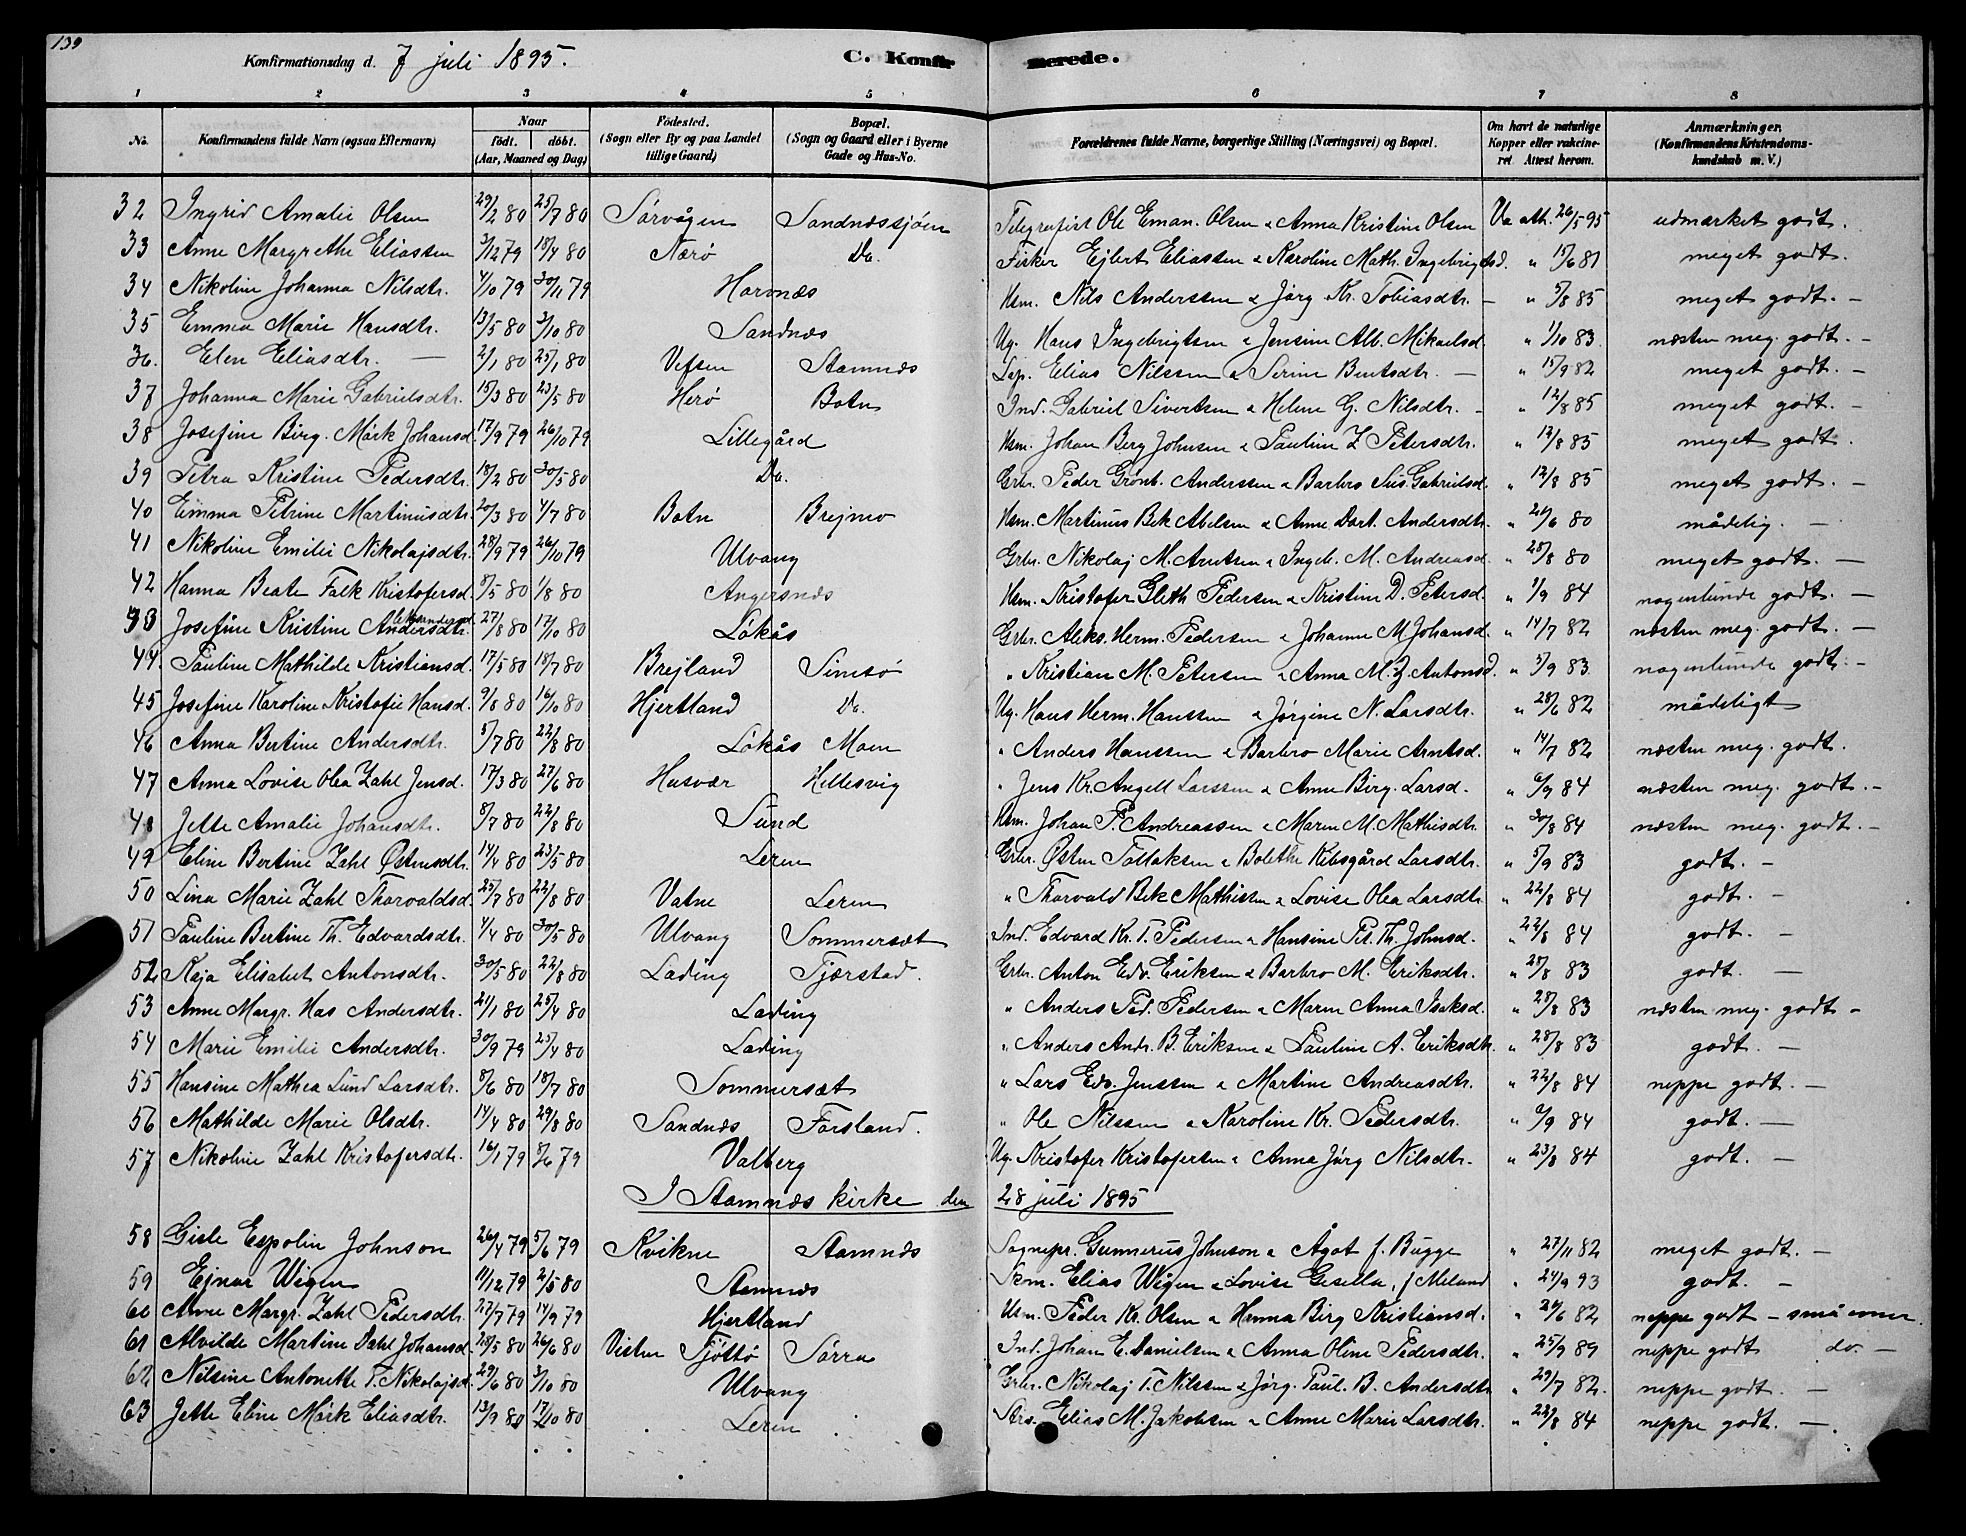 139
Konfirmationsdag d. 7 juli 1895. C. Konfirmerede.
1 2 3 4 5 6 7 8
No. Konfirmandens fulde Navn (ogsaa Efternavn) Naar født. døbt. (Aar, Maaned og Dag) Fødested. (Sogn eller By og paa Landet tillige Gaard) Bopæl. (Sogn og Gaard eller i Byerne Gade og Hus-No. Forældrenes fulde Navne, borgerlige Stilling (Næringsvei) og Bopæl. Om havt de naturlige Kopper eller vakcineret. Attest herom. Anmærkninger. (Konfirmandens Kristendomskundskab m. V.)
32 Ingrid Amalie Olsen 29/2 80 25/7 80 Sørvågen Sandnessjøen Telegrafist Ole Eman. Olsen & Anna Kristine Olsen Va ath. 26/5 95 udmærket godt.
33 Anne Margrethe Eliassen 3/12 79 18/4 80 Nærø Do. Fisker Ejlert Eliassen & Karoline Math. Ingebrigtsd. " 15/6 81 meget godt.
34 Nikoline Johanna Nilsdtr. 4/10 79 30/11 79 Havnæs Hsm. Nils Anderssen & Jørg. Kr. Tobiasdtr. — " 5/8 85 meget godt. —
35 Emma Marie Hansdtr. 13/5 80 3/10 80 Sandnæs Ug. Hans Ingebrigtsen & Jensine Alb. Mikaelsd. " 1/10 83. næsten meg. godt. —
36. Elen Eliasdtr. — 2/1 80 25/1 80 Vefsen Stamnæs Lap. Elias Nilssen & Serine Bentsdtr. — " 15/9 82 meget godt. —
37 Johanna Marie Gabrielsdtr. 15/3 80 23/5 80 Herø Botn Ind. Gabriel Sivertsen & Helene G. Nilsdtr. — " 12/8 85 meget godt. —
38 Josefine Birg. Mörk Johansd. 17/9 79 26/10 79 Lillegård Hsm. Johan Berg Johnsen & Pauline Z Petersdtr. " 12/8 85 meget godt.
39 Petra Kristine Pedersdtr. 18/2 80 30/5 80 Do. Grbr. Peder Grönb. Anderssen & Barbro Sus. Gabrielsd. " 12/8 85 meget godt. —
40 Emma Petrine Martinusdtr. 20/3 80 4/7 80 Botn Brejmo Hsm. Martinus Bek Abelsen & Anne Dort. Andersdtr. " 26/6 80 mådelig. —
41 Nikoline Emilie Nikolajsdtr. 28/9 79 26/10 79 Ulvang Grbr. Nikolaj M. Arntsen & Ingeb. M. Andreasd. " 28/8 80 meget godt. —
42 Hanna Beate Falk Kristofersd. 8/5 80 1/8 80 Angersnæs Hsm. Kristofer Gleth Pedersen & Kristine D. Petersd. " 1/9 84 nogenlunde godt. —
43 Josefine Kristine Andersdtr. 27/8 80 17/10 80 Løkås Grbr. Aleks. Herm. Pedersen & Johanne M Johansd. " 14/7 82 næsten meg. godt. —
44. Pauline Mathilde Kristiansd. 17/5 80 18/7 80 Brejland Simsø " Kristian M. Petersen & Anna M. Z. Antonsd. " 5/9 83 nogenlunde godt. —
45 Josefine Karoline Kristofie Hansd. 9/8 80 16/10 80 Hjertland Do. Ug. Hans Herm. Hanssen & Jørgine N. Larsdtr. " 28/6 82 mådeligt
46 Anna Bertine Andersdtr. 5/7 80 22/8 80 Løkås Moen " Anders Hanssen & Barbro Marie Arntsd. " 14/7 82 næsten meg. godt.
47 Anna Lovise Olea Zahl Jensd. 17/3 80 27/6 80 Husvær Hellesvig " Jens Kr. Angell Larssen & Anne Birg. Larsd. " 6/9 84 næsten meg. godt. —
48 Jette Amalie Johansdtr. 8/7 80 22/8 80 Sund Hsm. Johan P. Andreassen & Maren M. Mathisdtr. " 30/8 84 næsten meg. godt. —
49 Eline Bertine Zahl Østensdtr. 14/4 80 23/5 80 Leren Grbr. Østen Tollaksen & Bolethe Kibsgård Larsdtr. " 5/9 83 godt. —
50 Lina Marie Zahl Thorvaldsd. 25/7 80 22/8 80 Vatne Leren " Thorvald Bek Mathissen & Lovise Olea Larsdtr. " 22/8 84 godt. —
51 Pauline Bertine Th. Edvardsdtr. 1/4 80 30/5 80 Ulvang Sommersæt Ind. Edvard Kr. T. Pedersen & Hansine Pet. Th. Johnsd. " 22/8 84 godt. —
52 Kaja Elisabet Antonsdtr. 30/5 80 22/8 80 Lading Tjærstad. Grbr. Anton Edv. Eriksen & Barbro M. Eriksdtr. " 28/8 83 godt. —
53 Anne Margr. Has Andersdtr. 21/1 80 25/4 80 Lading " Anders Ped. Pedersen & Maren Anna Isaksd. " 28/8 83 næsten meg. godt —
54 Marie Emilie Andersdtr. 30/9 79 25/4 80 Lading " Anders Andr. B. Eriksen & Pauline A. Eriksdtr. " 28/8 83 godt. —
55 Hansine Mathea Lund Larsdtr. 8/6 80 18/7 80 Sommersæt " Lars Edv. Jenssen & Martine Andreasdtr. " 22/8 84 neppe godt. —
56 Mathilde Marie Olsdtr. 14/4 80 29/8 80 Sandnæs Forsland. " Ole Nilssen & Karoline Kr. Pedersdtr. " 6/9 84 godt. —
57 Nikoline Zahl Kristofersdtr. 16/1 79 8/6 79 Valberg Ug. Kristofer Kristofersen & Anna Jørg. Nilsdtr. " 23/8 84 godt. —
I Stamnæs kirke den 28 juli 1895
58 Gisle Espolin Johnson 26/4 79 5/6 79 Kvikne Stamnæs Sognepr. Gunnerus Johnson & Ågot f. Bugge " 27/11 82 meget godt. —
59 Ejnar Wigen 11/12 79 2/5 80 Stamnæs Skm. Elias Wigen & Lovise Gesella, f Meland " 24/9 93 godt. —
60 Anne Margr. Zahl Pedersdtr. 27/7 79 14/9 79 Hjertland Hsm. Peder Kr. Olsen & Hanna Birg Kristiansd. " 26/6 82 neppe godt — små evner.
61 Alvilde Martine Dahl Johansd. 28/5 80 26/6 80 Visten Tjøttø Sørra Ind. Johan E. Danielsen & Anna Oline Pedersdtr. " 25/9 89 neppe godt do. —
62 Nilsine Antonette T. Nikolajsd. 29/6 80 3/10 80 Ulvang Grbr. Nikolaj T. Nilssen & Jørg. Paul. B. Andersdtr. " 29/7 82. neppe godt. —
63 Jette Eline Mörk Eliasdtr. 13/9 80 17/10 80 Leren Elias M. Jakobsen & Anne Marie Larsdtr. " 22/8 84 neppe godt. —